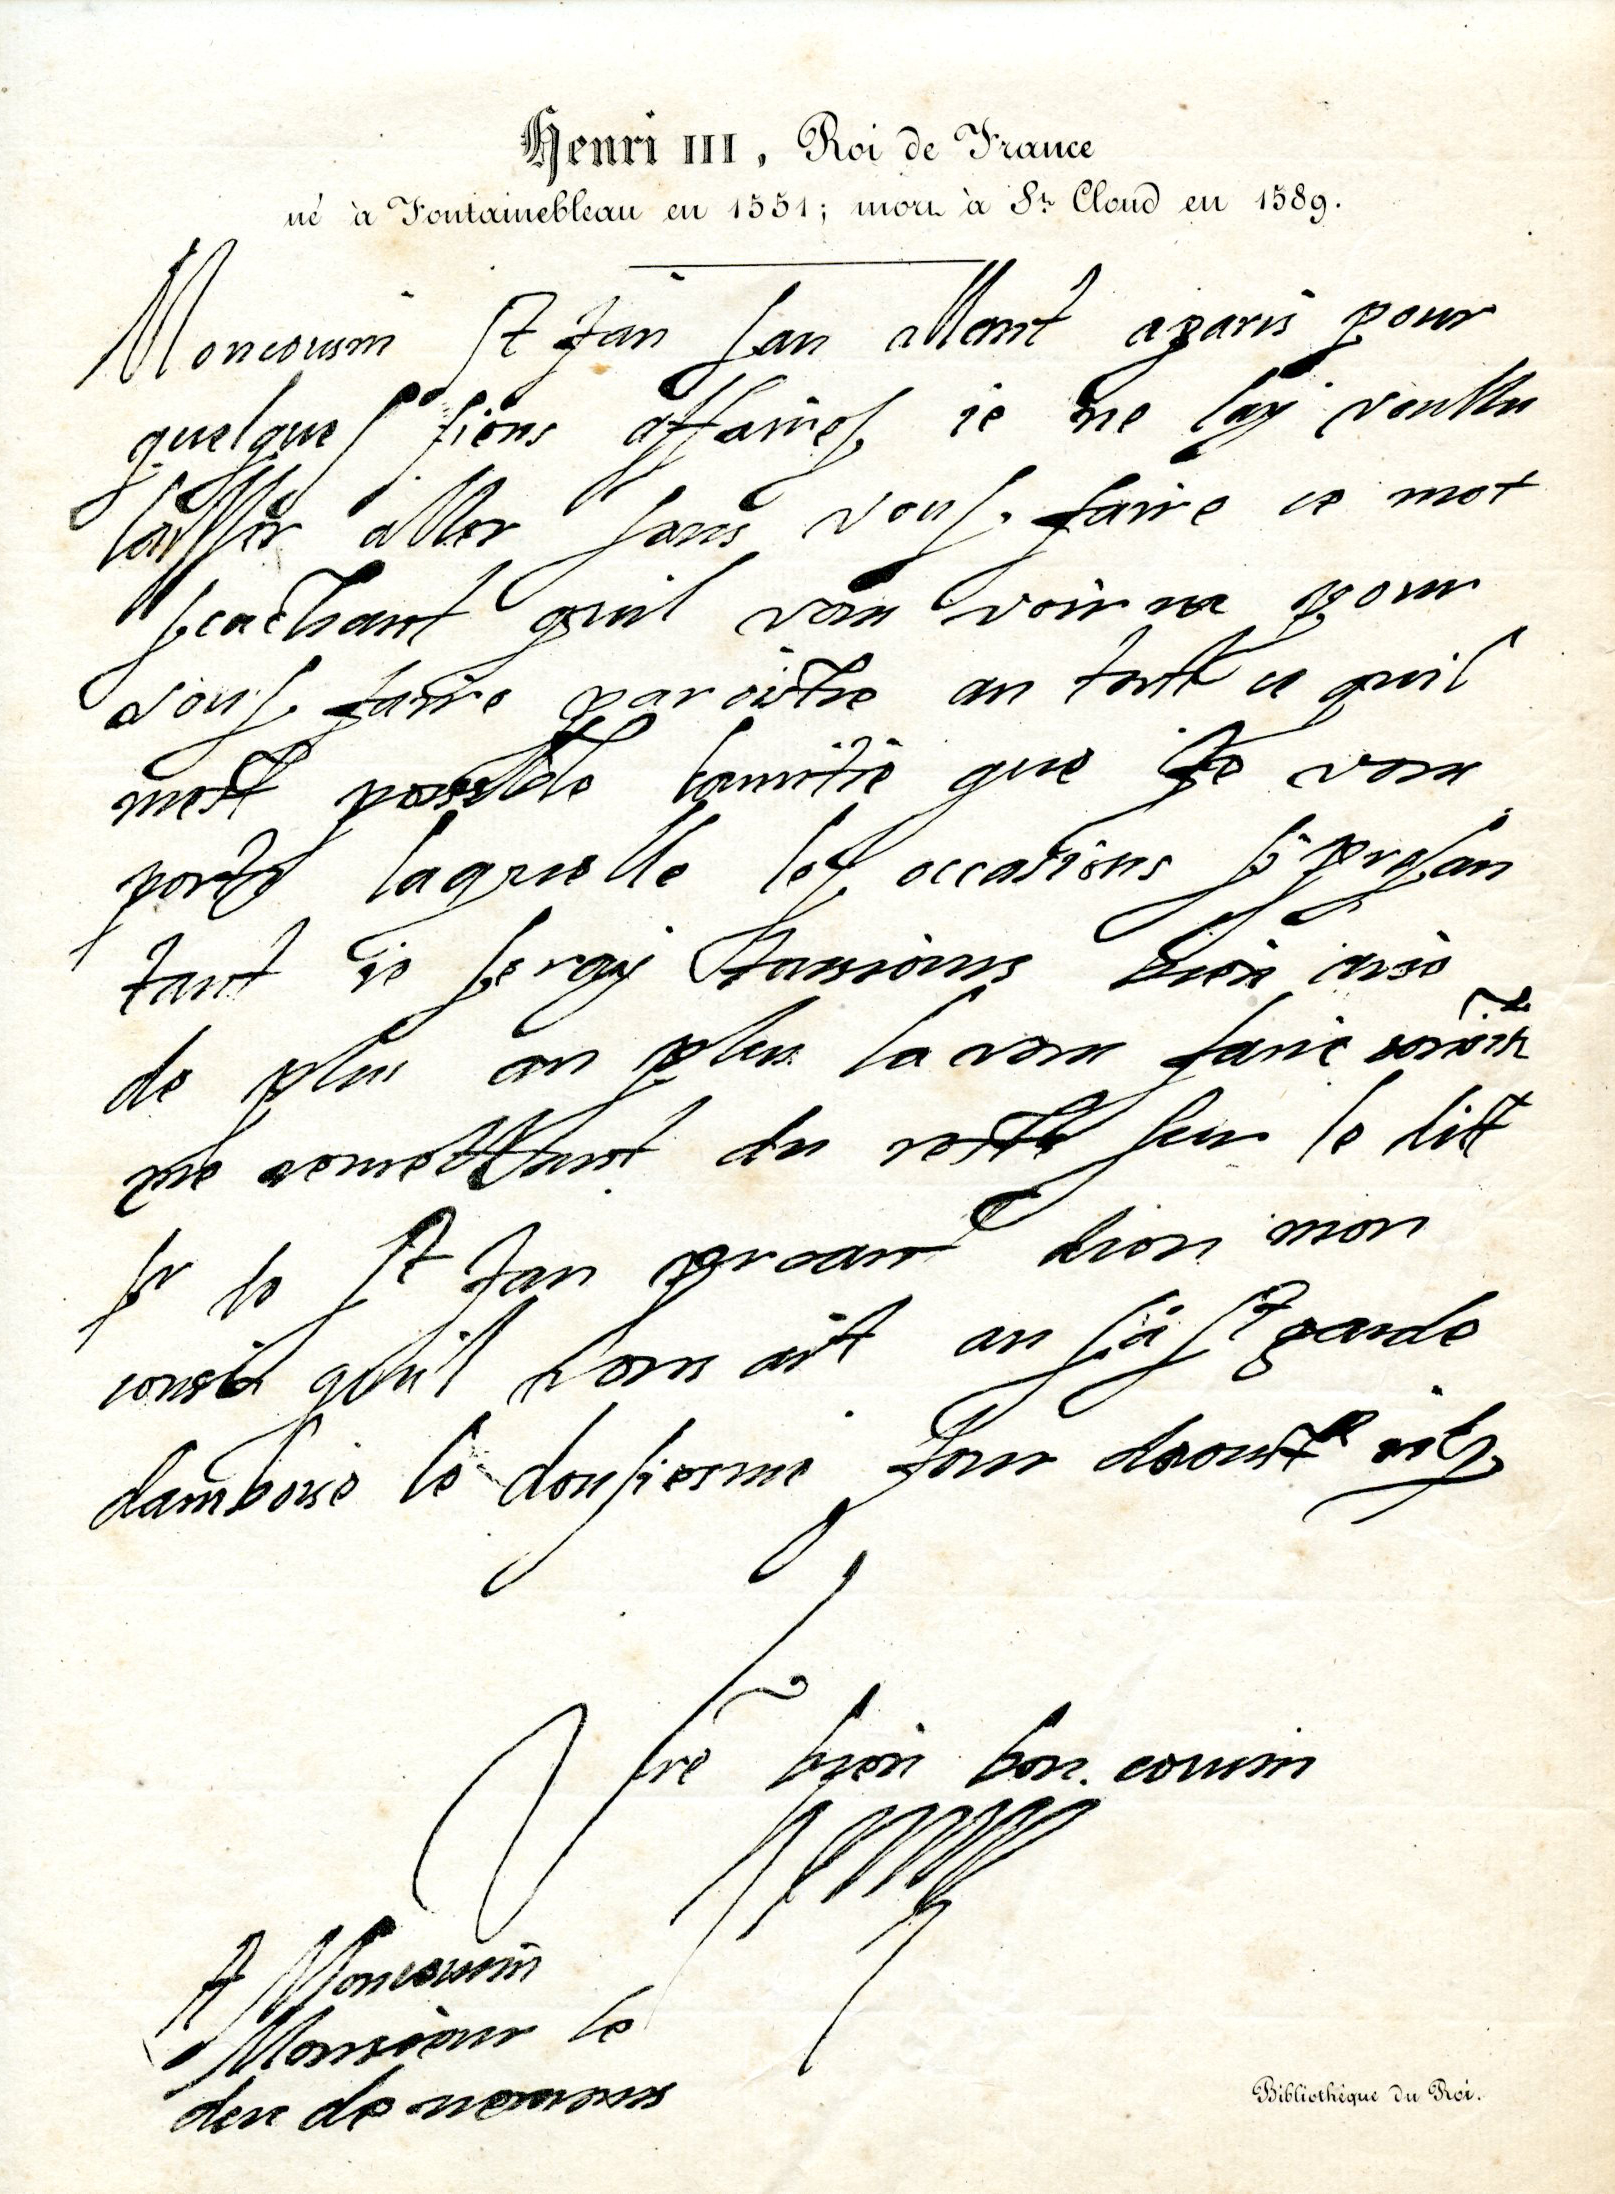 Henri III, Roi de France
né à Fontainebleau en 1551; mort à St Cloud en 1589.
Moncousin St Jan san allant aparis pour
quelques siens affaires ie ne lay voullu
laisser aller sans vous faire ce mot
scachant quil vous voirra pour
vous faire paroistre an tout ce quil
mest possible lamitie que Je vous
porte laquelle les occasions se presan
tant ie seray tousiours bien aise
de plus an plus la vous faire
me remettant du reste sur le dit
sr de St Jan priant dieu mon
cousin quil vous ait an sa Ste garde
damboise le dousiesme Jour daoust
Vre bien bon cousin
Henry
A Moncousin
Monsieur le
duc de nemours
Bibliothèque du Roi.